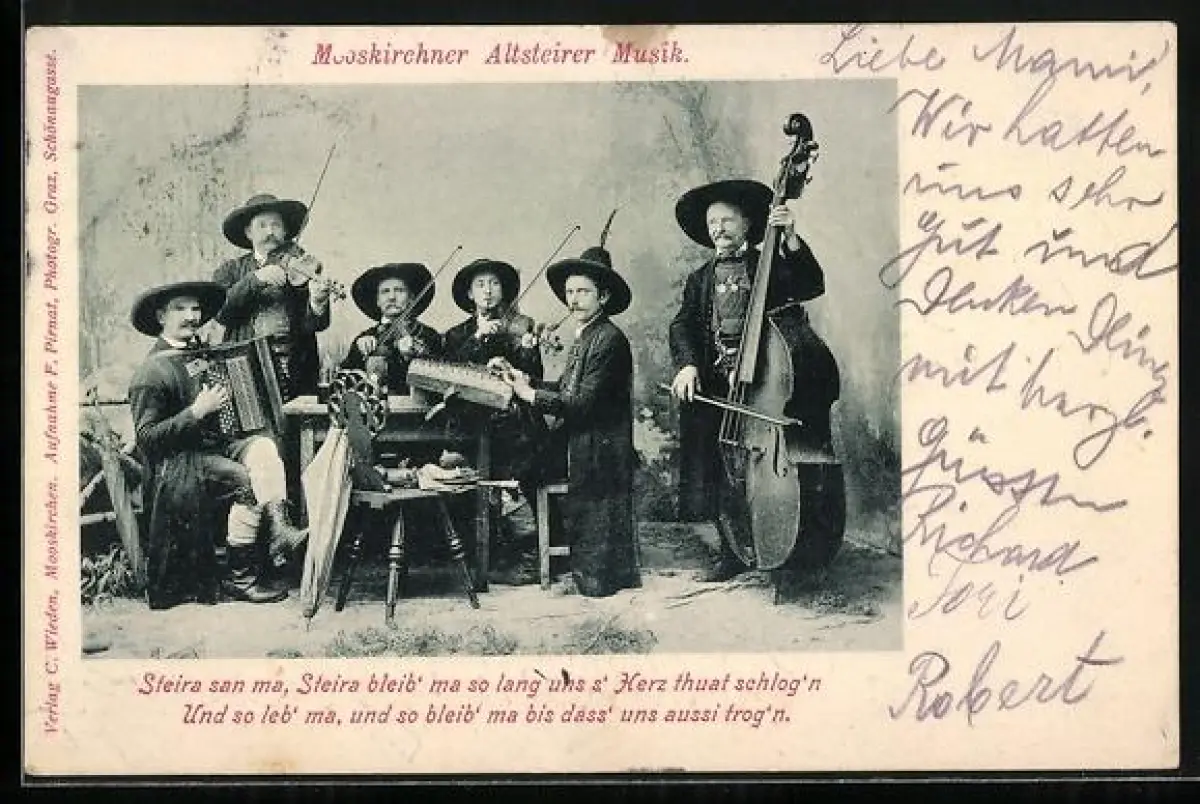 Mooskirchner Altsteirer Musik.
Verlag C. Wieden, Mooskirchen. Aufnahme F. Pirnat, Photogr. Graz, Schönaugasse.
Steira san ma, Steira bleib' ma so lang uns s' Herz thuat schlog'n
Und so leb' ma, und so bleib' ma bis dass' uns aussi trog'n.
Liebe Mami,
Wir hatten
uns sehr
gut und
denken
mit herzl.
Grüssen
Richard
Robert